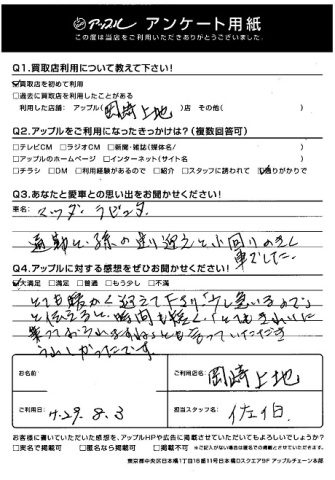 アップル アンケート用紙
この度は当店をご利用いただきありがとうございました。
Q1.買取店利用について教えて下さい!
☑買取店を初めて利用
□過去に買取店を利用したことがある
利用した店舗: アップル(岡崎上地)店 その他( )
Q2.アップルをご利用になったきっかけは?(複数回答可)
□テレビCM □ラジオCM □新聞・雑誌(媒体名/ )
□アップルのホームページ □インターネット(サイト名 )
□チラシ □DM □利用経験があるので □紹介 □スタッフに誘われて ☑通りがかりで
Q3.あなたと愛車との思い出をお聞かせください!
車名: マツダ・ラピュタ
通勤と、孫の送り迎えと小回りのきく
車でした。
Q4.アップルに対する感想をぜひお聞かせください!
☑大満足 □満足 □普通 □もう少し □不満
とても暖かく迎えて下さり「少し急いるので」
と伝えると、時間も短く、「とてもきれいに
乗っておられますね」とも言っていただき
うれしかったです。
お名前:
ご利用店名: 岡崎上地
ご利用日: H29.8.3
担当スタッフ名: 佐伯
お客様に書いていただいた感想を、アップルHPや広告に掲載させていただいてもよろしいでしょうか?
□実名で掲載可 □匿名なら掲載可 □掲載不可 ※ご記入がない場合は匿名での掲載とさせていただきます
東京都中央区日本橋1丁目16番11号日本橋Dスクエア9F アップルチェーン本部